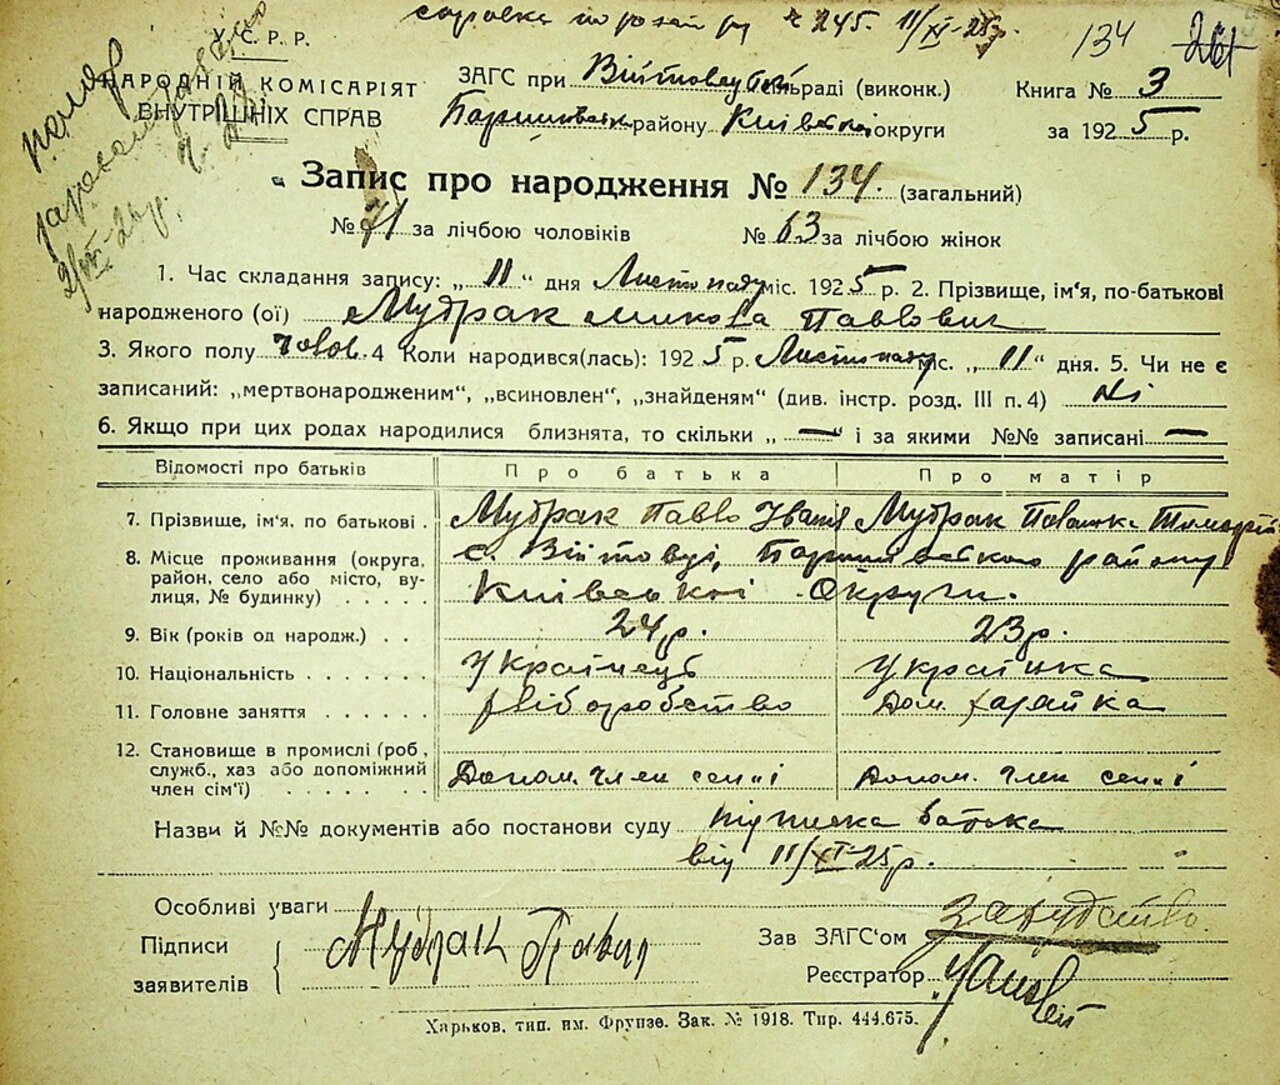 справка по розят ру № 245. 11/XI-25р.
134 261
У.С.Р.Р.
НАРОДНІЙ КОМІСАРІЯТ
ВНУТРІШНІХ СПРАВ
помер
2/VI-26р.
ЗАГС при Війтовецькій сільраді (виконк.) Книга № 3
Баришівськ району Київської округи за 1925 р.
Запис про народження № 134. (загальний)
№ 71 за лічбою чоловіків № 63 за лічбою жінок
1. Час складання запису: „ 11 “ дня Листопаду міс. 1925 р. 2. Прізвище, ім‘я, по-батькові
народженого (ої) Мудрак Микола Павлович
3. Якого полу Чолов. 4 Коли народився(лась): 1925 р. Листопаду міс. „ 11 “ дня. 5. Чи не є
записаний: „мертвонародженим“, „всиновлен“, „знайденям“ (див. інстр. розд. III п. 4) Ні
6. Якщо при цих родах народилися близнята, то скільки „ — “ і за якими №№ записані —
Відомості про батьків Про батька Про матір
7. Прізвище, ім‘я, по батькові . Мудрак Павло Іванів Мудрак Повашка
8. Місце проживання (округа, с. Війтовці, Баришівського району
район, село або місто, ву-
лиця, № будинку) . . . . . Київської Округи.
9. Вік (років од народж.) . . 24 р. 23 р.
10. Національність . . . . . . . Українець Українка
11. Головне заняття . . . . . . хліборобство Дом. хазяйка
12. Становище в промислі (роб.,
служб., хаз або допоміжний Допом. член сем'ї Допом. член сем'ї
член сім‘ї) . . . . . .
Назви й №№ документів або постанови суду підписка батька
від 11/XI-25р.
Особливі уваги
Підписи Мудрак Павло Зав ЗАГС‘ом
заявителів Реєстратор
Харьков, тип. им. Фрунзе. Зак. № 1918. Тир. 444.675.